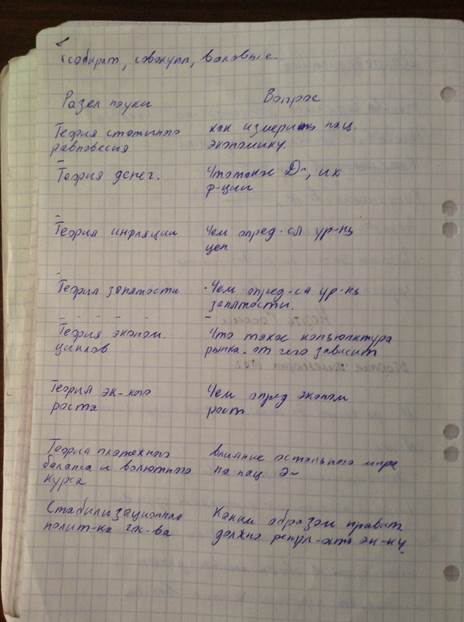 собират, совокупн, валовые
Раздел науки Вопрос
Теория статичного как измерить нац.
равновесия экономику.
Теория денег. Что такое D~, их
ф-ции
Теория инфляции Чем опред-ся ур-нь
цен
Теория занятости Чем опред-ся ур-нь
занятости.
Теория эконом. Что такое конъюнктура
циклов. рынка. от чего зависит
Теория эк-кого Чем опред эконом
роста рост
Теория платежного влияние остального мира
баланса и валютного на нац. Э~
курса
Стабилизационная Каким образом правит
полит-ка гос-ва должно регул-овать эк-ку